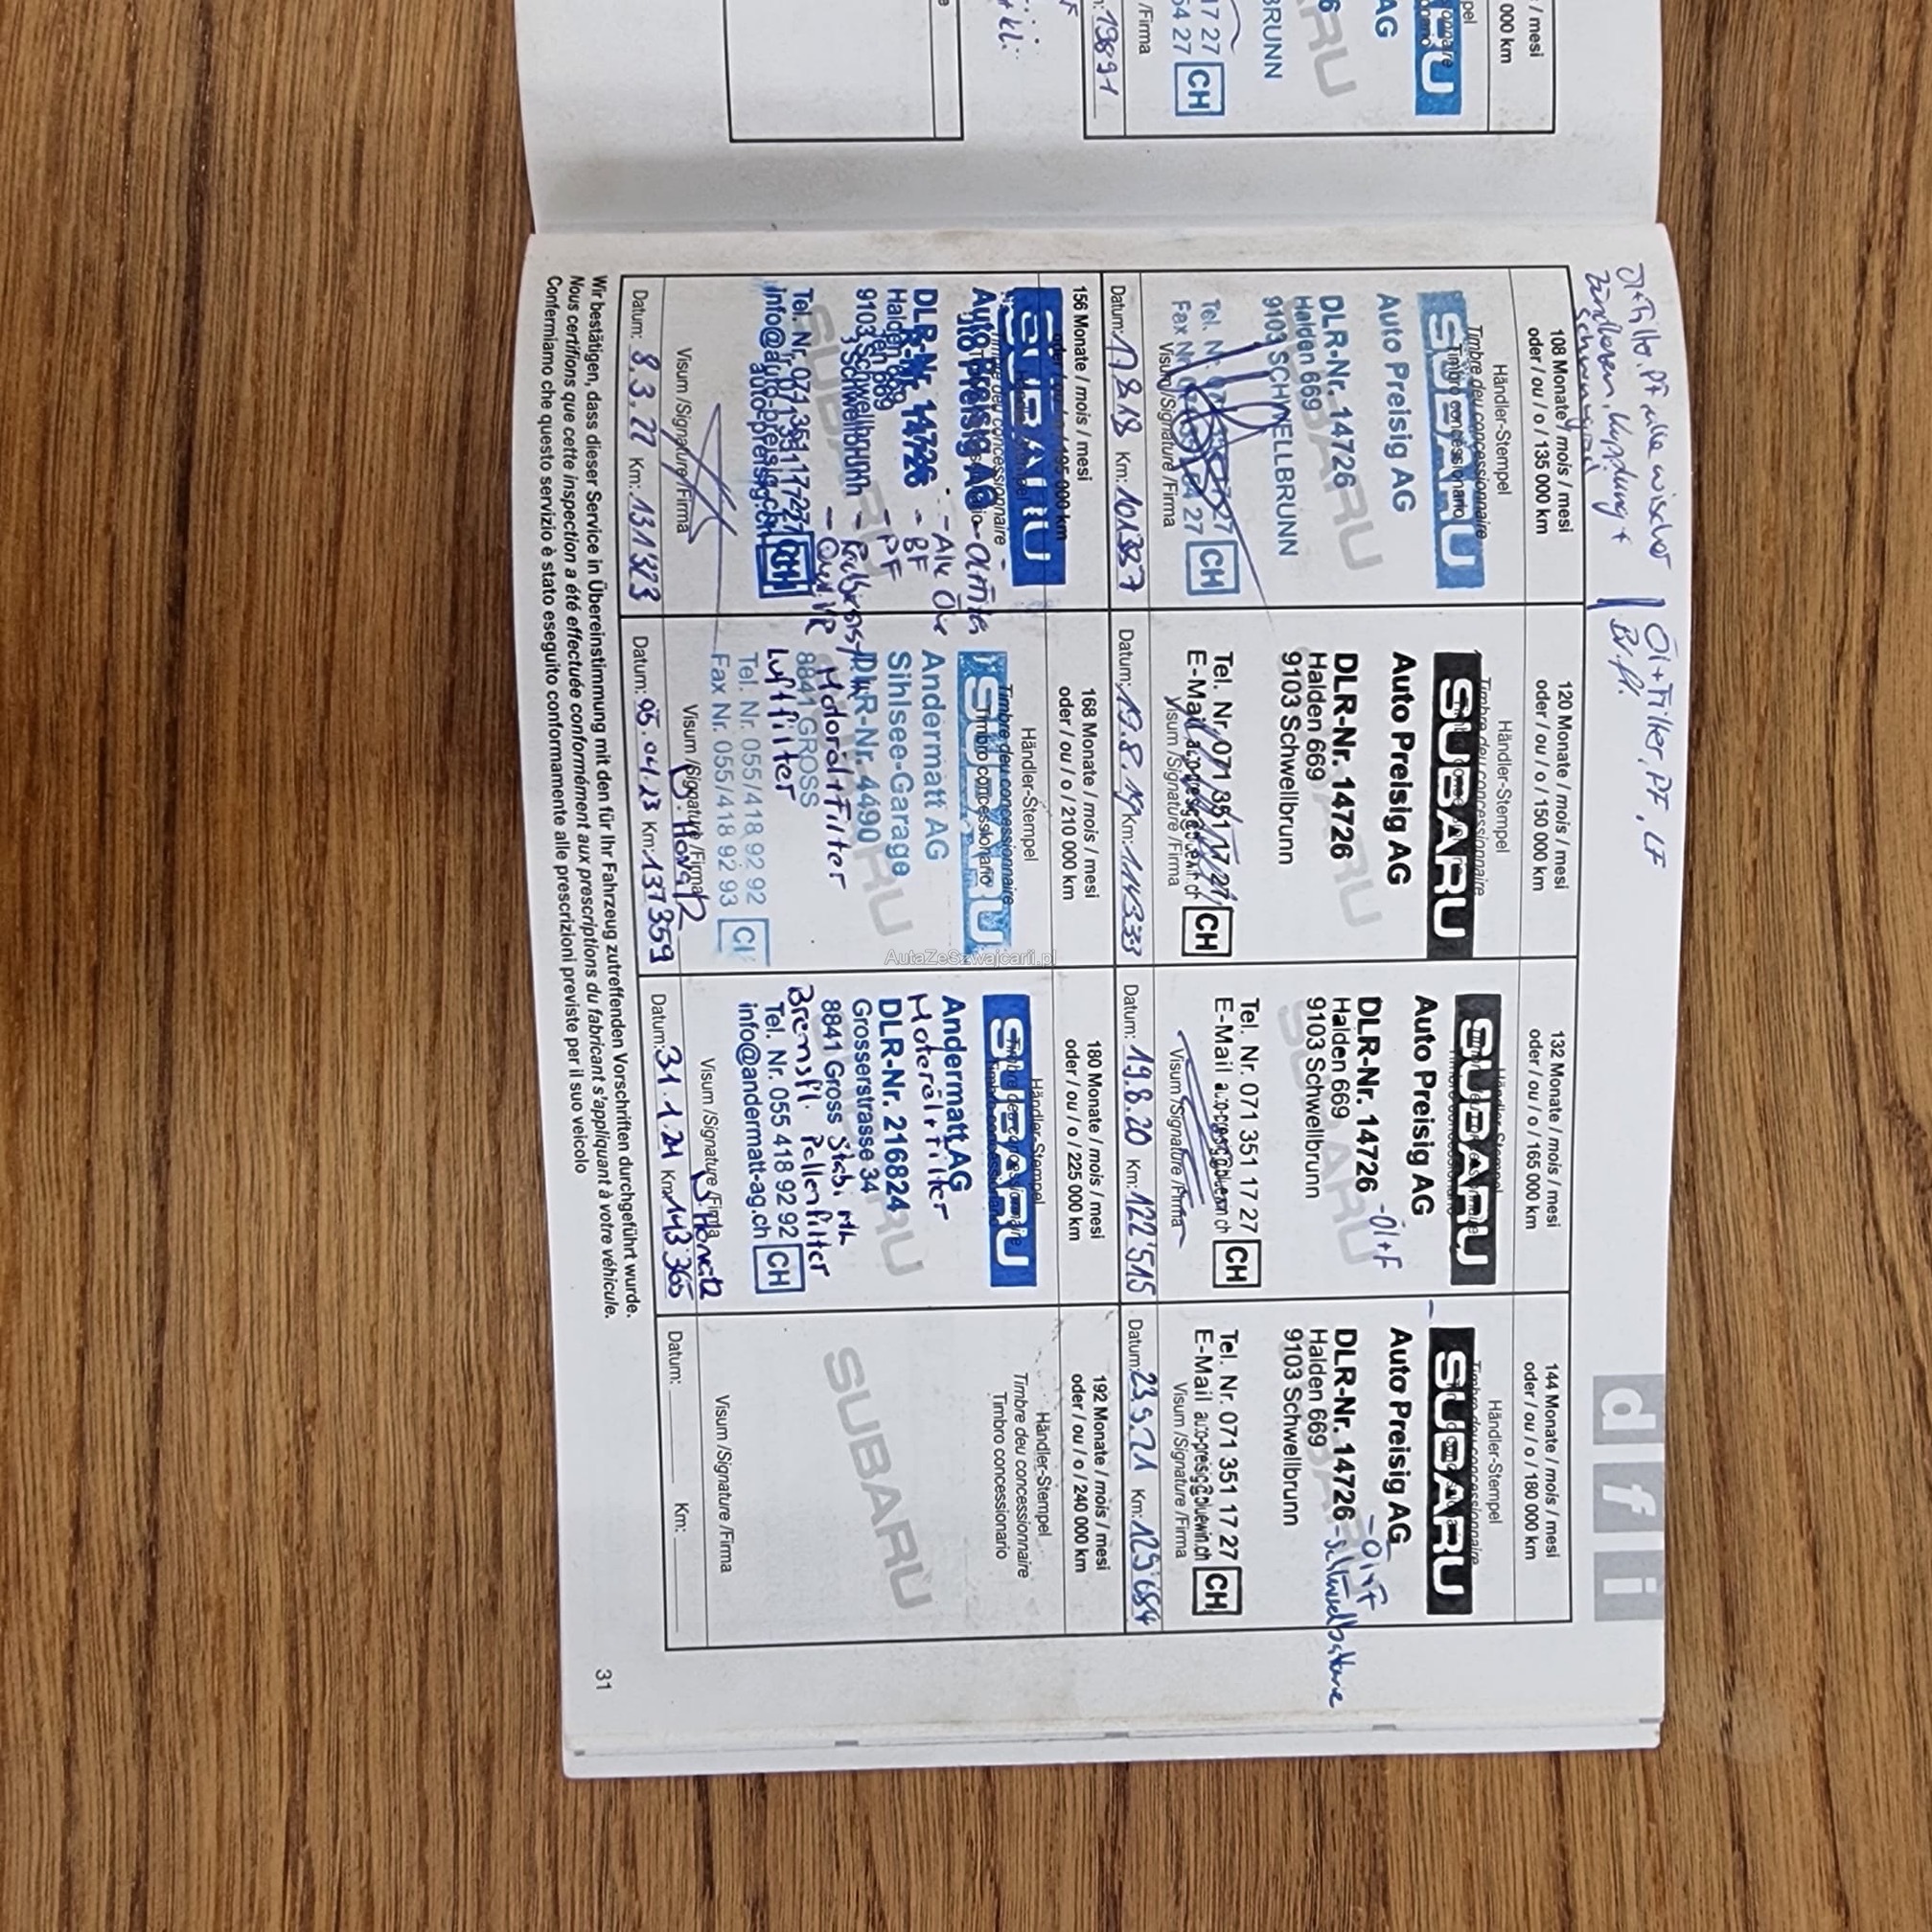 Öl + Filter, PF, LF
Br.fl.
d f i
108 Monate / mois / mesi
oder / ou / o / 135 000 km
Händler-Stempel
Timbre deu concessionnaire
Timbro concessionario
SUBARU
Auto Preisig AG
DLR-Nr. 14726
Halden 669
9103 SCHWELLBRUNN
CH
Visum /Signature /Firma
Datum: 17.8.18 Km: 101'337
120 Monate / mois / mesi
oder / ou / o / 150 000 km
Händler-Stempel
Timbre deu concessionnaire
SUBARU
Auto Preisig AG
DLR-Nr. 14726
Halden 669
9103 Schwellbrunn
Tel. Nr. 071 351 17 27
E-Mail auto-preisig@bluewin.ch CH
Visum /Signature /Firma
Datum: 19.8.19 Km: 114'333
132 Monate / mois / mesi
oder / ou / o / 165 000 km
Händler-Stempel
SUBARU
Auto Preisig AG
DLR-Nr. 14726 -Öl+F
Halden 669
9103 Schwellbrunn
Tel. Nr. 071 351 17 27
E-Mail auto-preisig@bluewin.ch CH
Visum /Signature /Firma
Datum: 19.8.20 Km: 122'515
144 Monate / mois / mesi
oder / ou / o / 180 000 km
Händler-Stempel
Timbre deu concessionnaire
SUBARU
Auto Preisig AG -Öl+F
DLR-Nr. 14726
Halden 669
9103 Schwellbrunn
Tel. Nr. 071 351 17 27
E-Mail auto-preisig@bluewin.ch CH
Visum /Signature /Firma
Datum: 23.9.21 Km: 129'684
156 Monate / mois / mesi
oder / ou / o / 195 000 km
SUBARU
Auto Preisig AG
DLR-Nr. 14726 - BF
Halden 669 - PF
9103 Schwellbrunn
Tel. Nr. 071 351 17 27
info@auto-preisig.ch CH
Visum /Signature /Firma
Datum: 8.3.22 Km: 131'323
168 Monate / mois / mesi
oder / ou / o / 210 000 km
Händler-Stempel
Timbre deu concessionnaire
Timbro concessionario
SUBARU
Andermatt AG
Sihlsee-Garage
DLR-Nr. 4490
Motoröl+Filter
8841 GROSS
Luftfilter
Tel. Nr. 055/418 92 92
Fax Nr. 055/418 92 93
Visum /Signature /Firma
Datum: 05.04.23 Km: 137 359
180 Monate / mois / mesi
oder / ou / o / 225 000 km
Händler-Stempel
SUBARU
Andermatt AG
Motoröl+Filter
DLR-Nr. 216824
Grosserstrasse 34
8841 Gross
Bremsfl. Pollenfilter
Tel. Nr. 055 418 92 92
info@andermatt-ag.ch CH
Visum /Signature /Firma
Datum: 31.1.24 Km: 143'365
192 Monate / mois / mesi
oder / ou / o / 240 000 km
Händler-Stempel
Timbre deu concessionnaire
Timbro concessionario
SUBARU
Visum /Signature /Firma
Datum: Km:
Wir bestätigen, dass dieser Service in Übereinstimmung mit den für Ihr Fahrzeug zutreffenden Vorschriften durchgeführt wurde.
Nous certifions que cette inspection a été effectuée conformément aux prescriptions du fabricant s'appliquant à votre véhicule.
Confermiamo che questo servizio è stato eseguito conformamente alle prescrizioni previste per il suo veicolo
31
AutaZeSzwajcarii.pl